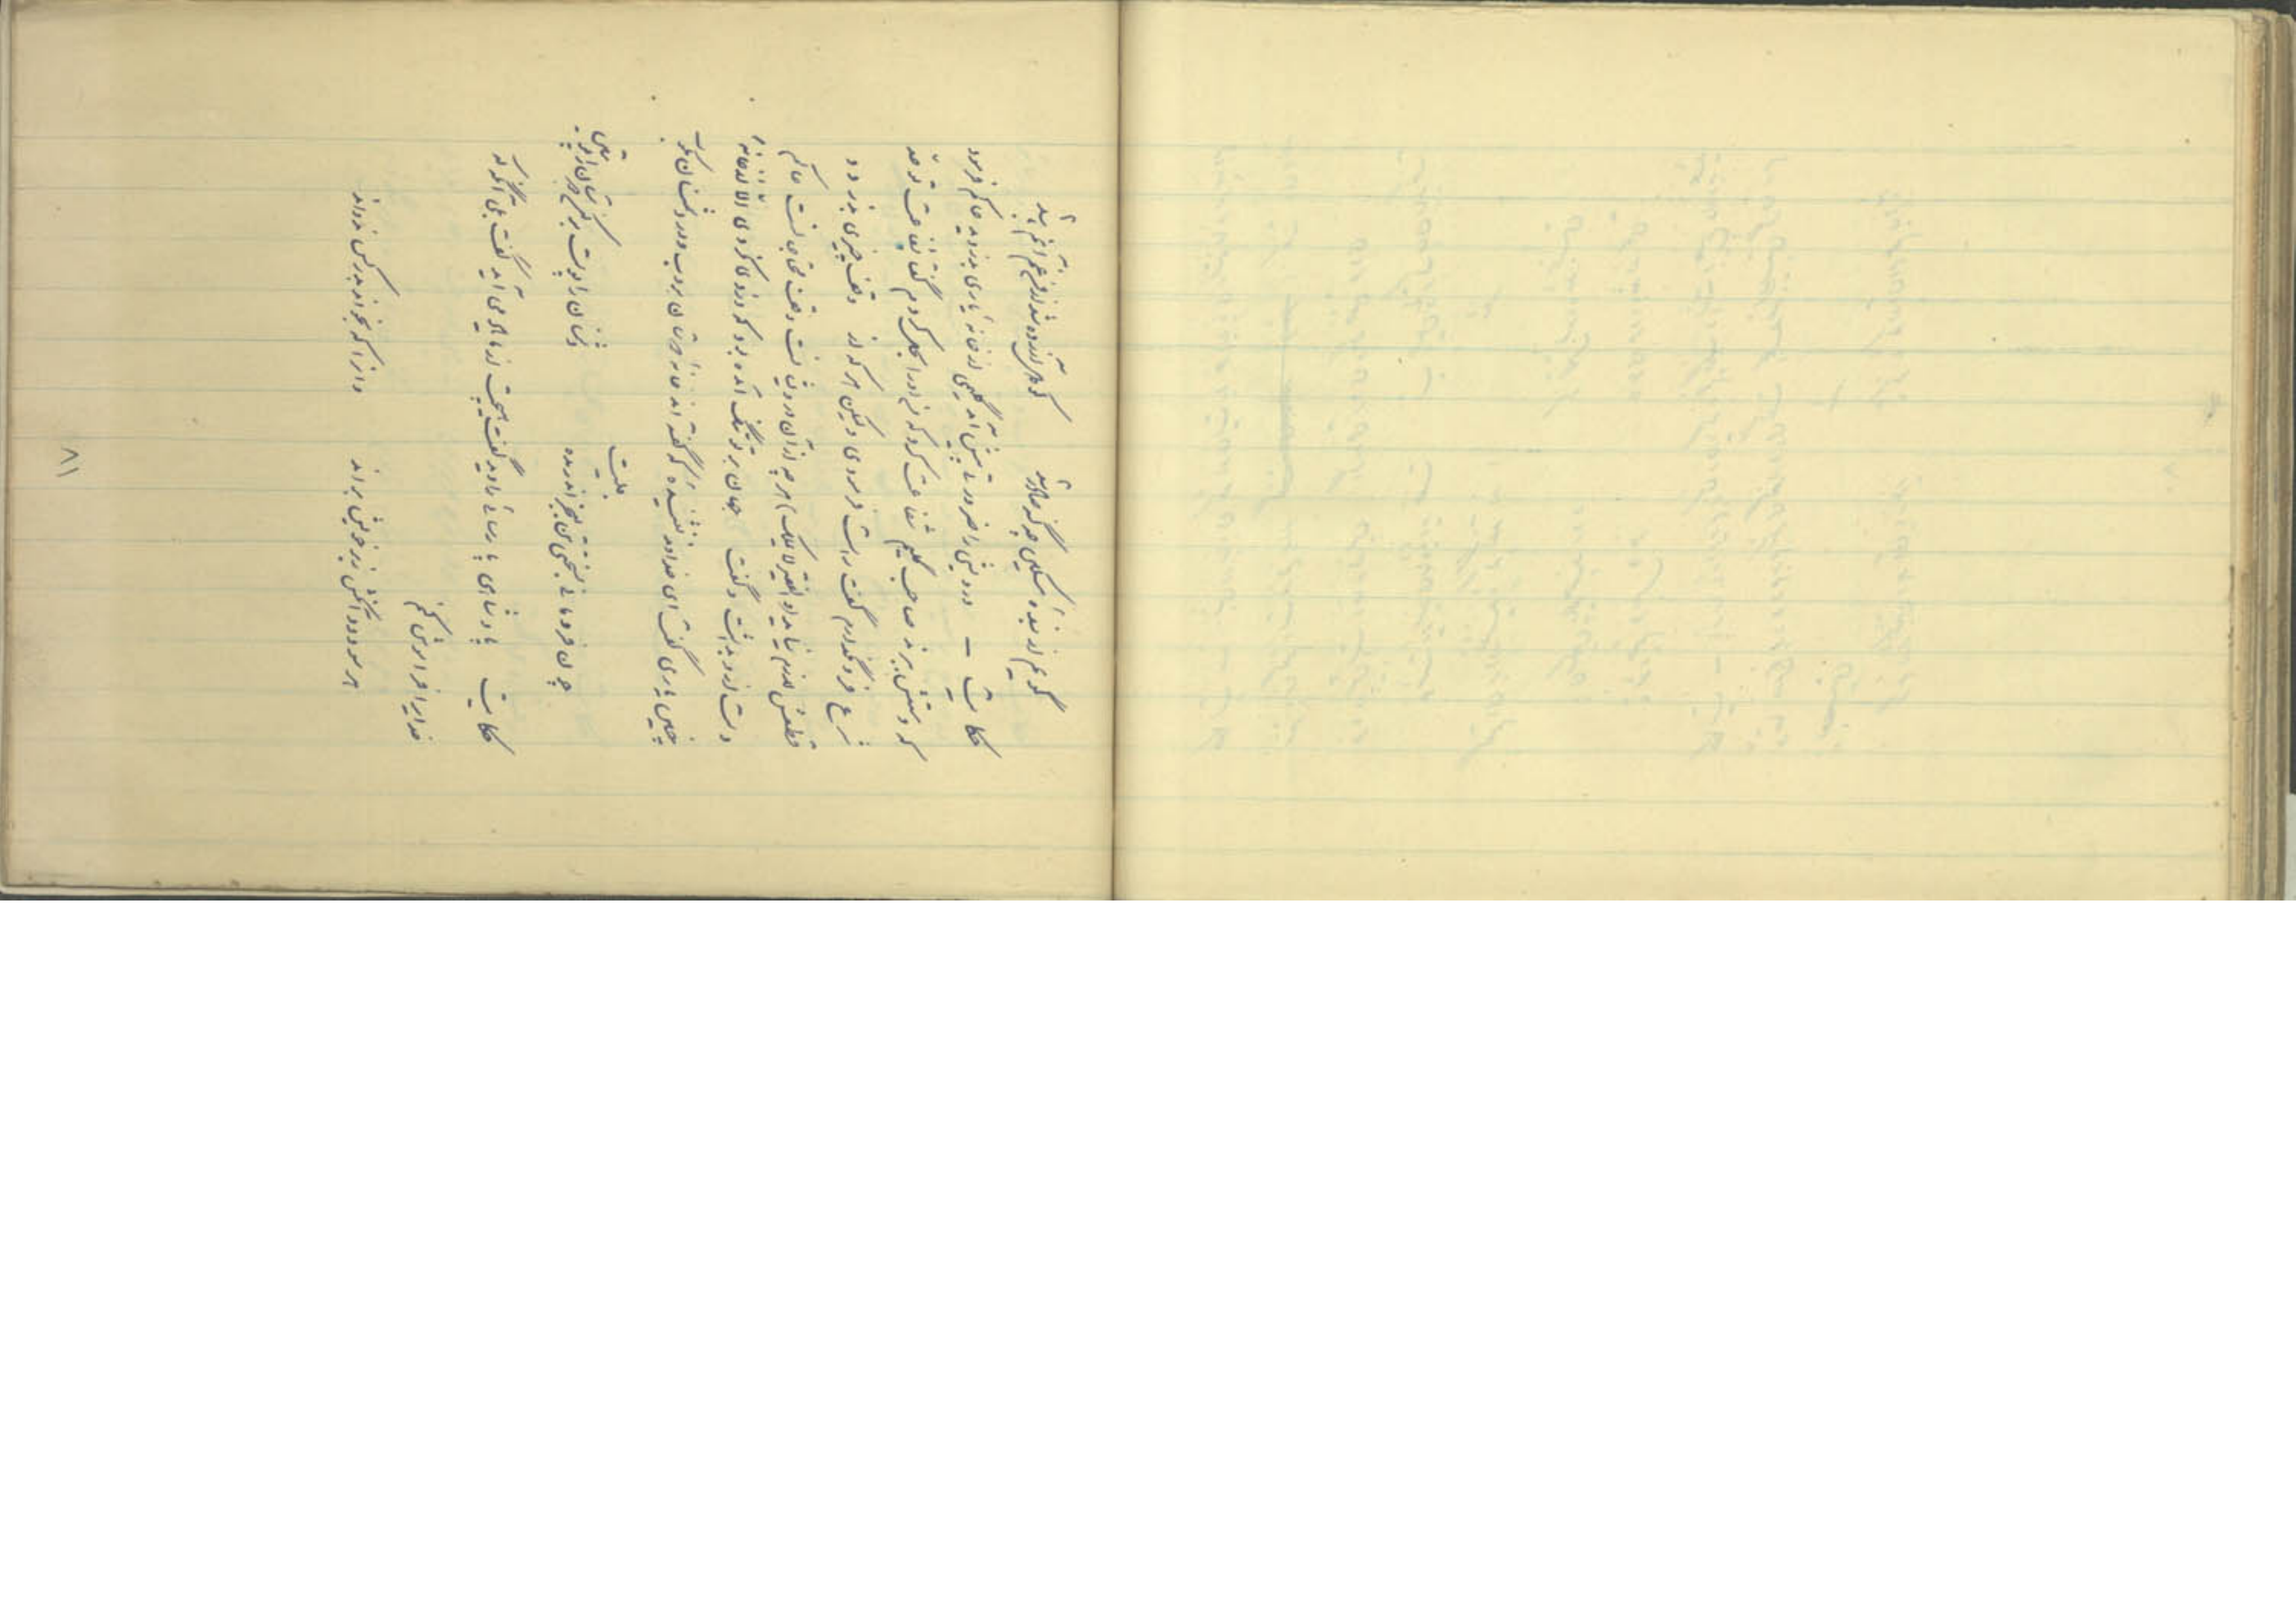 گویم از بنده مسکین چه گنه صادر شد کو دل آزرده شد از من غم آنم باشد
حکایت – درویشی را ضرورتی پیش آمد گلیمی از خانه یاری بدزدید حاکم فرمود
که دستش ببرند صاحب گلیم شفاعت کرد که من او را بحل کردم گفتا بشفاعت تو حد
شرع فرو نگذارم گفت راست فرمودی ولیکن هر که از وقف چیزی بدزدد
قطعش لازم نیاید و الفقیر لا یملک هر چه از آن درویشان است وقف محتاجانست حاکم
دست از او بداشت و گفت جهان بر تو تنگ آمده بود که دزدی نکردی الا از خانه
چنین یاری گفت ای خداوند نشنیده که گفته اند خانه دوستان بروب و در دشمنان مکوب
بیت
چون فرومانی بسختی تن بعجز اندر مده دشمنان را پوست برکن دوستان را پوستین
حکایت پادشاهی پارسائی را دید گفت هیچت از ما یاد می آید گفت بلی آنگه که
خدا را فراموش کنم
هر سو دود آنکش ز بر خویش براند و آنرا که بخواند بدر کس ندواند
۸۱